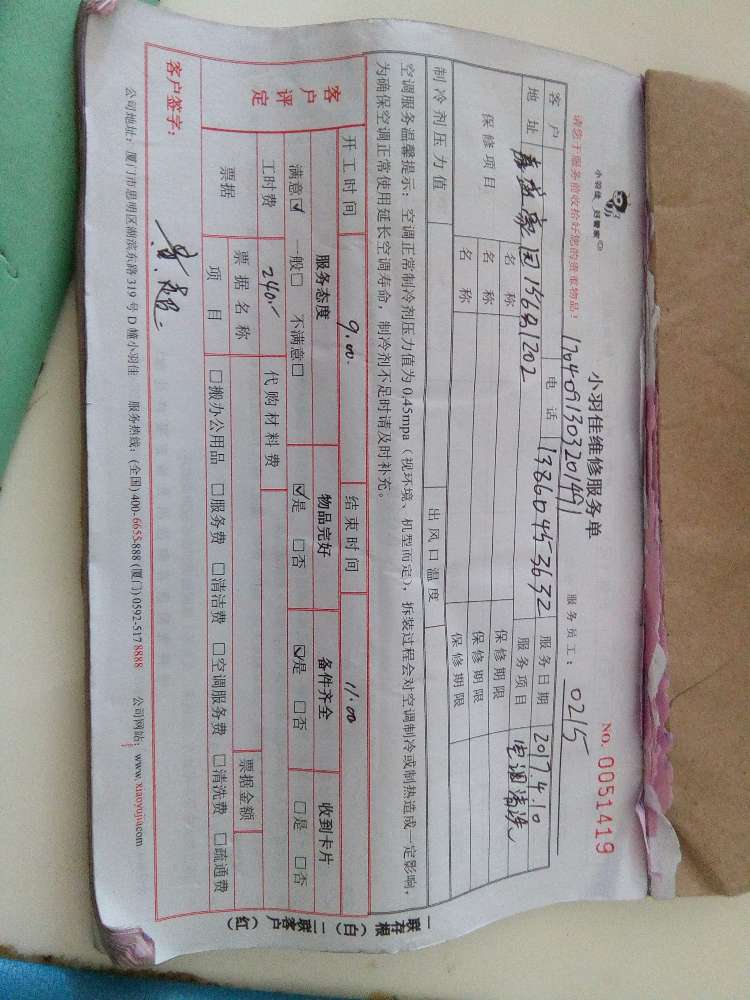 小羽佳 好管家
小羽佳维修服务单
No. 0051419
请您于服务前收拾好您的贵重物品!
服务员工: 0215
客户 电话 13860453632 服务日期 2017.4.10
地址 1568 1202 服务项目 空调清洗
保修项目 名称 保修期限
名称 保修期限
名称 保修期限
制冷剂压力值 出风口温度
空调服务温馨提示: 空调正常制冷剂压力值为0.45mpa (视环境、机型而定), 拆装过程会对空调制冷或制热造成一定影响,
为确保空调正常使用延长空调寿命, 制冷剂不足时请及时补充。
开工时间 9.00. 结束时间 11.00
客户评定 服务态度 物品完好 备件齐全 收到卡片
满意☑ 一般□ 不满意□ ☑是 □否 ☑是 □否 □是 □否
工时费 240.- 代购材料费
票据 票据名称 票据金额
项目 □搬办公用品 □服务费 □清洁费 □空调服务费 □清洗费 □疏通费
客户签字:
公司地址: 厦门市思明区湖滨东路319号D幢小羽佳 服务热线: (全国) 400-6655-888 (厦门) 0592-5178888 公司网站: www.xiaoyujia.com
一联存根(白) 二联客户(红)